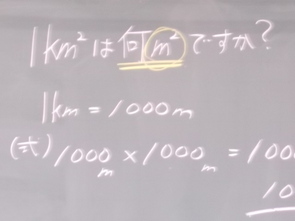 1km²は何m²ですか?
1km = 1000m
(式) 1000m × 1000m = 100
10